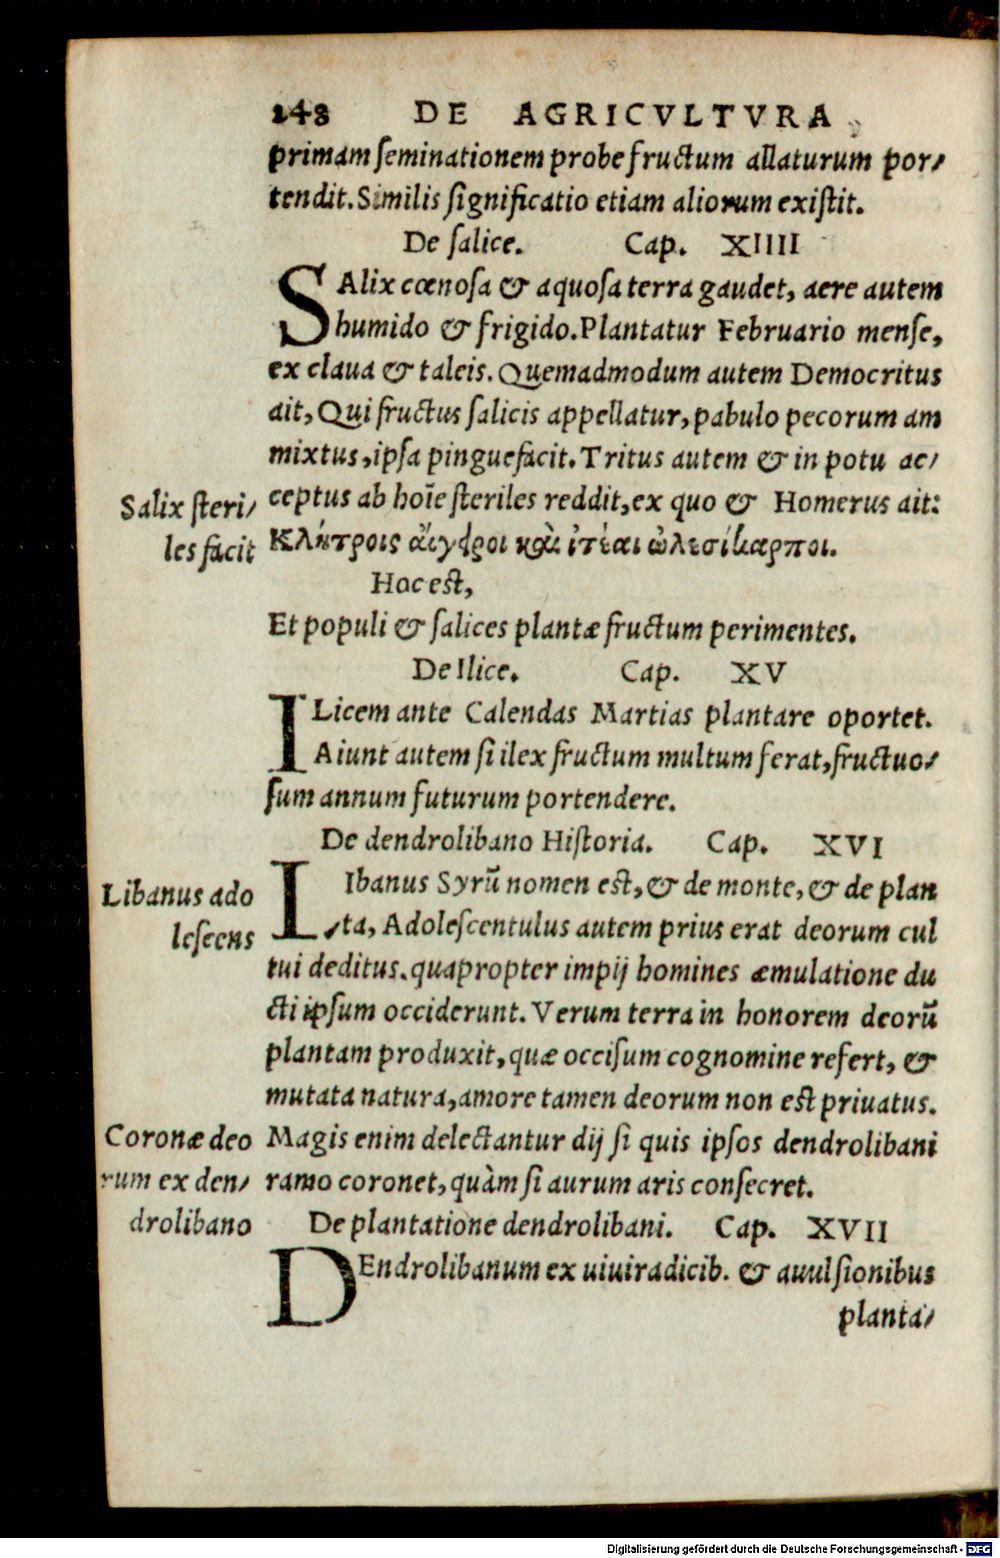 248 DE AGRICVLTVRA
primam ſeminationem probe fructum allaturum por⸗
tendit. Similis ſignificatio etiam aliorum exiſtit.
De ſalice. Cap. XIIII
SAlix cœnoſa & aquoſa terra gaudet, aere autem
humido & frigido. Plantatur Februario menſe,
ex claua & taleis. Quemadmodum autem Democritus
ait, Qui fructus ſalicis appellatur, pabulo pecorum am
mixtus, ipſa pinguefacit. Tritus autem & in potu ac⸗
Salix ſteri⸗
les facit
ceptus ab hoīe ſteriles reddit, ex quo & Homerus ait:
Κλήτροις ἄιγφροι καὶ ἰτέαι ὠλεσίκαρποι.
Hoc eſt,
Et populi & ſalices plantæ fructum perimentes.
De Ilice. Cap. XV
ILicem ante Calendas Martias plantare oportet.
Aiunt autem ſi ilex fructum multum ferat, fructuo⸗
ſum annum futurum portendere.
De dendrolibano Hiſtoria. Cap. XVI
Libanus ado
leſcens
LIbanus Syrū nomen eſt, & de monte, & de plan
ta, Adoleſcentulus autem prius erat deorum cul
tui deditus. quapropter impij homines æmulatione du
cti ipſum occiderunt. Verum terra in honorem deorū
plantam produxit, quæ occiſum cognomine refert, &
mutata natura, amore tamen deorum non eſt priuatus.
Coronæ deo
rum ex den⸗
drolibano
Magis enim delectantur dij ſi quis ipſos dendrolibani
ramo coronet, quàm ſi aurum aris conſecret.
De plantatione dendrolibani. Cap. XVII
DEndrolibanum ex uiuiradicib. & auulſionibus
planta⸗
Digitalisierung gefördert durch die Deutsche Forschungsgemeinschaft - DFG